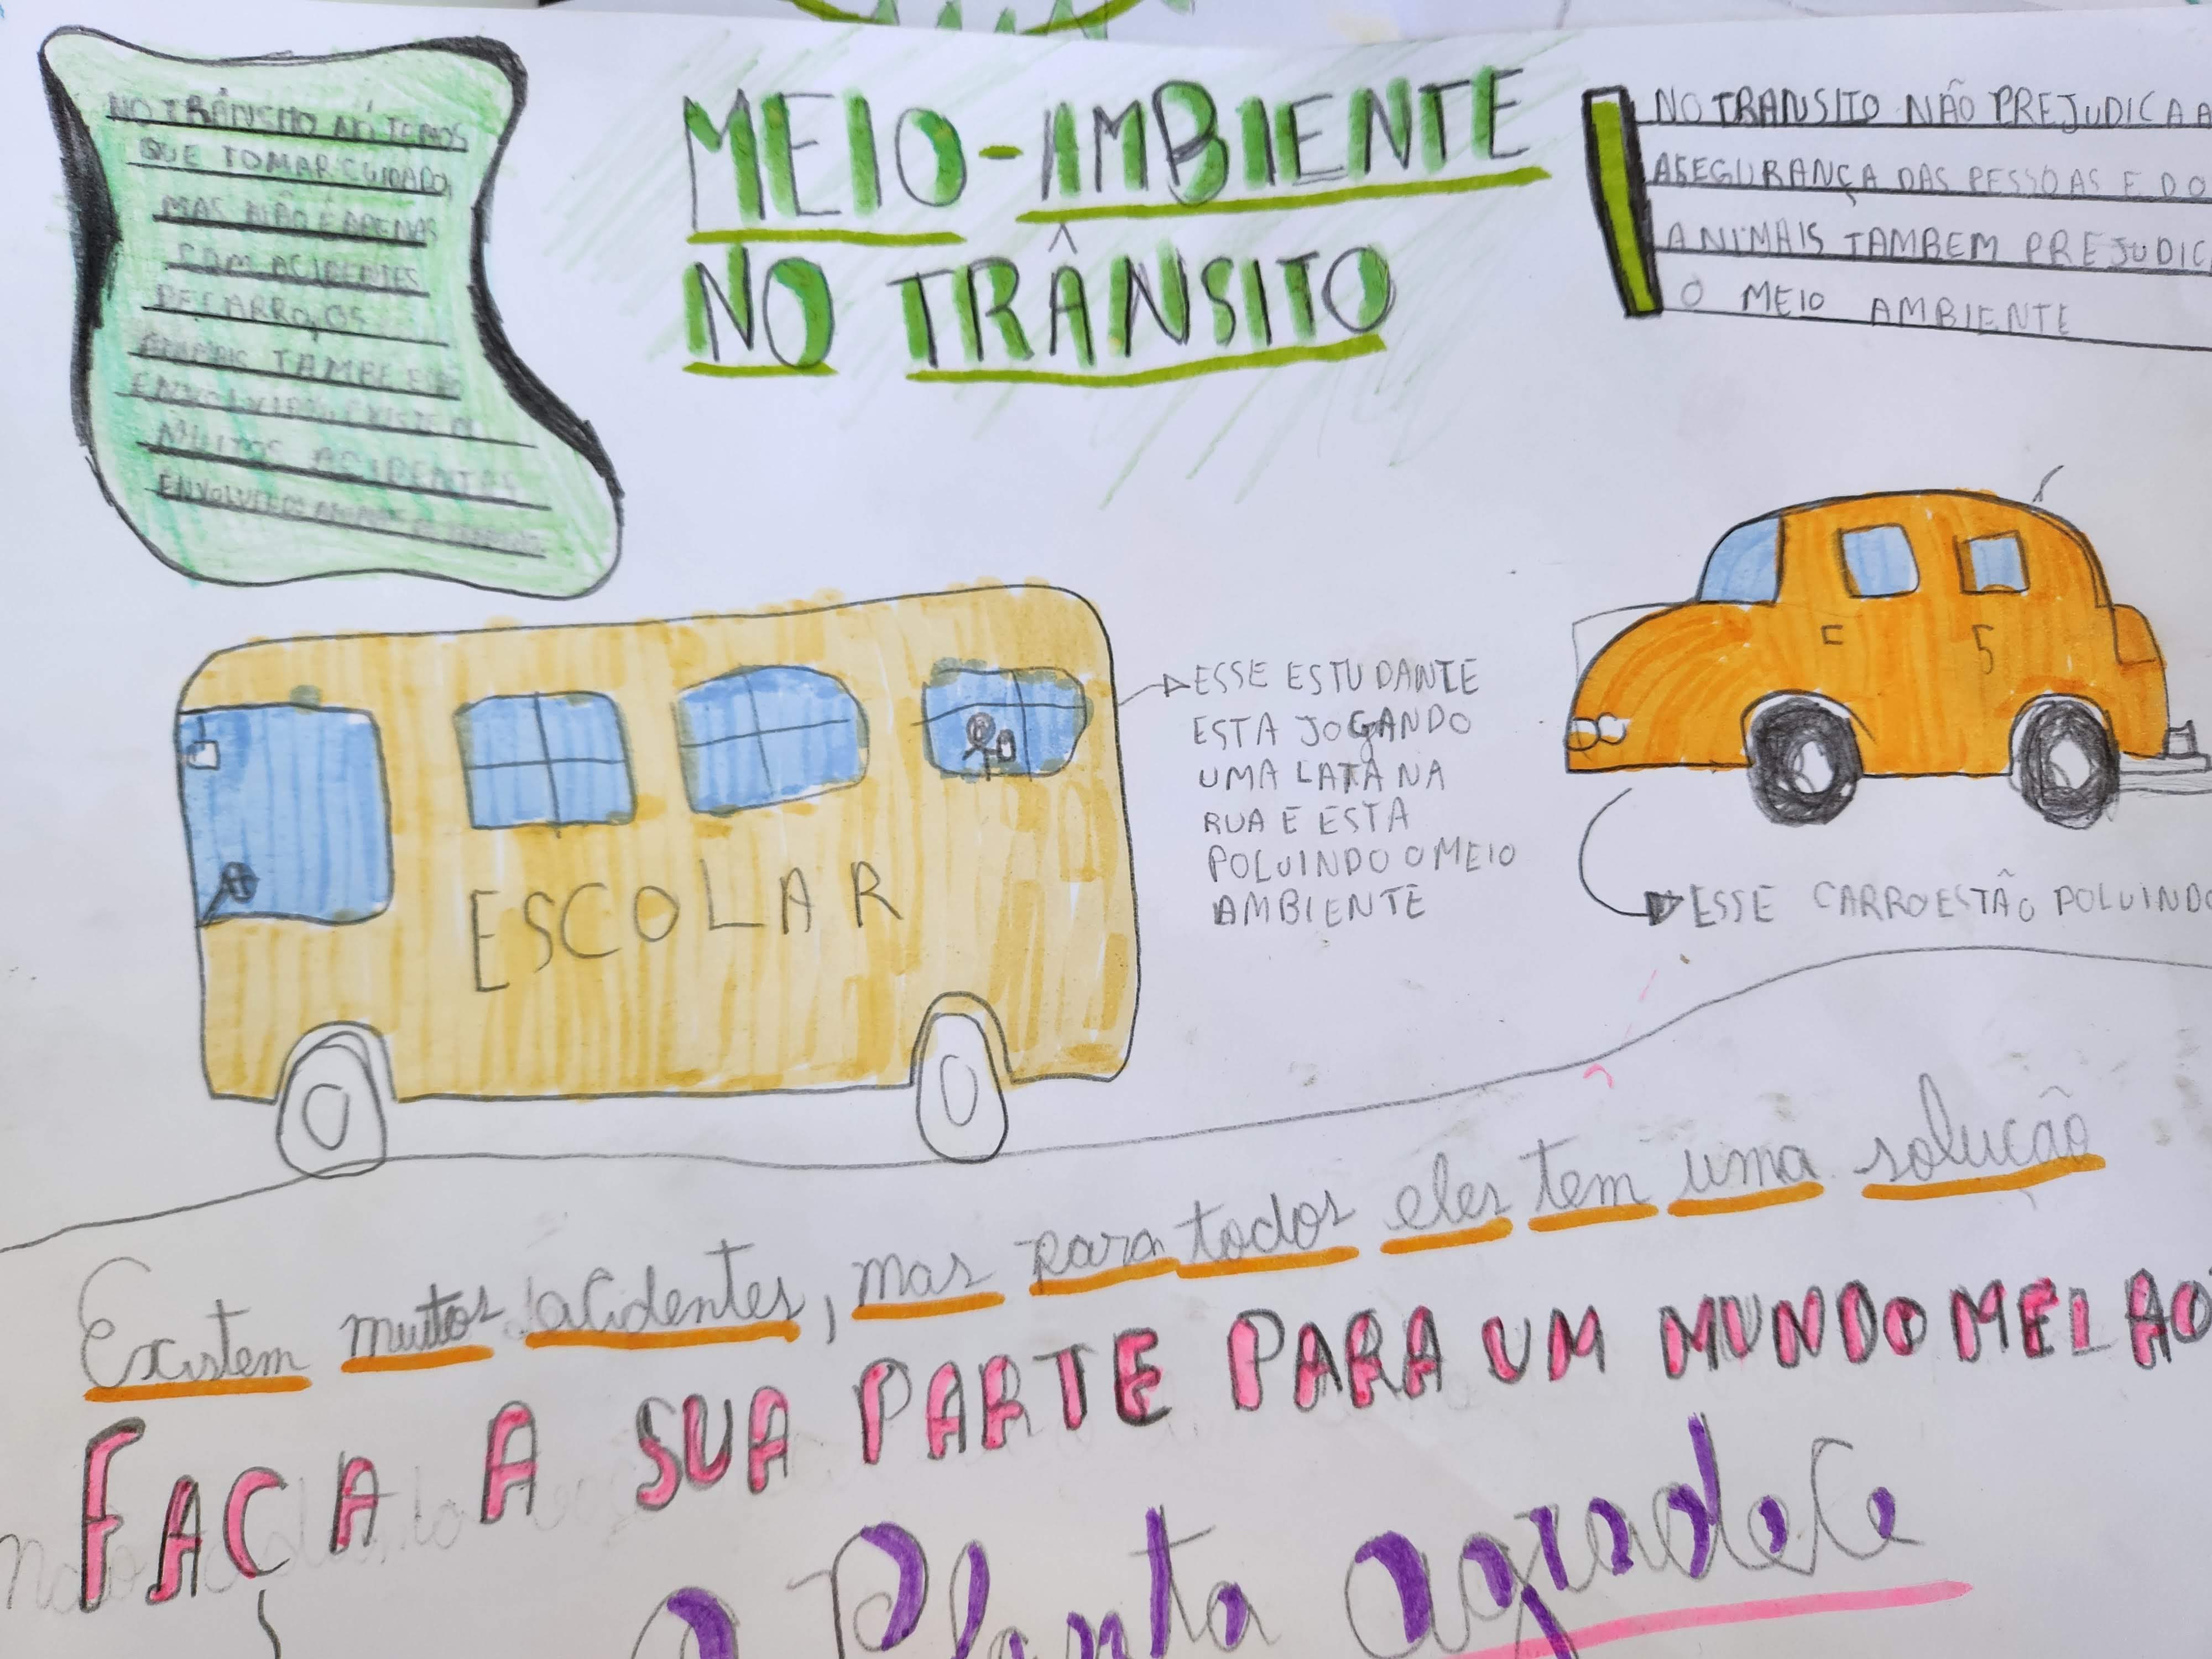 NO TRÂNSITO NÓ TEMOS
QUE TOMAR CUIDADO,
MAS NÃO É APENAS
COM ACIDENTES
DE CARRO, OS
ANIMAIS TAMBE
EXISTEM
MUITOS ACIDENTES
ENVOLVENDO
MEIO-AMBIENTE
NO TRÂNSITO
NO TRANSITO NÃO PREJUDICA A
ASEGURANÇA DAS PESSOAS E DO
ANIMAIS TAMBEM PREJUDIC
O MEIO AMBIENTE
ESSE ESTUDANTE
ESTA JOGANDO
UMA LATA NA
RUA E ESTA
POLUINDO O MEIO
AMBIENTE
ESCOLAR
5
ESSE CARRO ESTÃO POLUINDO
Existem muitos acidentes, mas para todos eles tem uma solução
FAÇA A SUA PARTE PARA UM MUNDO MEL
Planta agradece